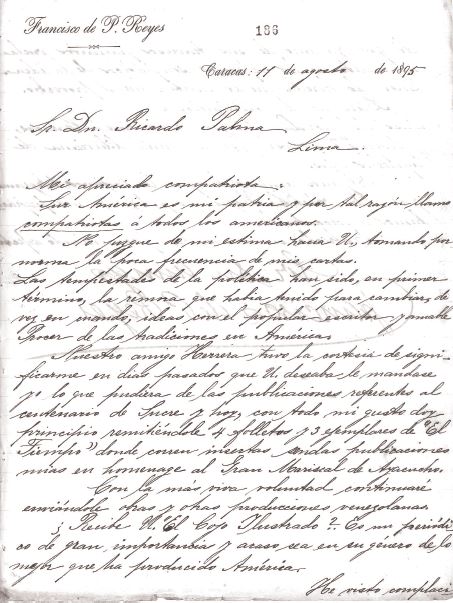 Francisco de P. Reyes
186
Caracas: 11 de agosto de 1895
Sr. Dn. Ricardo Palma
Lima.
Mi apreciado compatriota:
Sur América es mi patria y por tal razón llamo
compatriotas á todos los americanos.
No juzgue de mi estima hacia U, tomando por
norma la poca frecuencia de mis cartas.
Las tempestades de la política han sido, en primer
término, la que había tenido para cambiar, de
vez en cuando, ideas con el popular escritor y amable
Procer de las tradiciones en América.
Nuestro amigo Herrera tuvo la cortesía de signi-
ficarme en dias pasados que U. deseaba le mandase
yo lo que pudiera de las publicaciones referentes al
centenario de Sucre y hoy, con todo mi gusto doy
principio remitiéndole 4 folletos y 3 ejemplares de "El
Tiempo" donde corren insertas sendas publicaciones
mias en homenage al Gran Mariscal de Ayacucho.
Con la más viva voluntad continuaré
enviándole otras y otras producciones venezolanas.
¿Recibe U. "El Cojo Ilustrado"? Es un periódi-
co de gran importancia y acaso sea en su género de lo
mejor que ha producido América.
He visto complaci